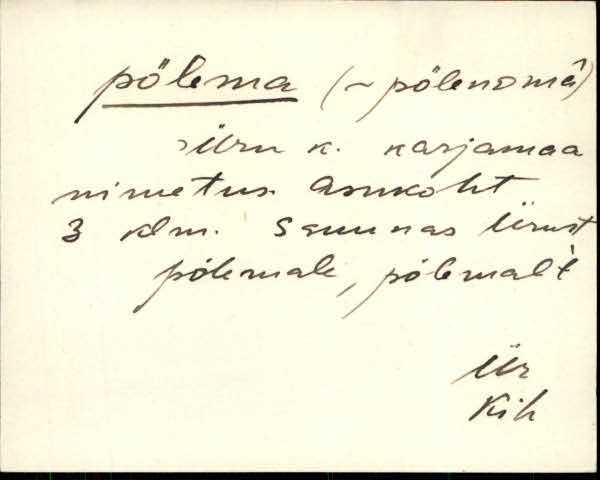 põlema (~ põlenomā)
Üru k. karjamaa
nimetus. Asukoht
3 klm. Saunas Ürust
põlemale, põlemalt
Ür
Kih